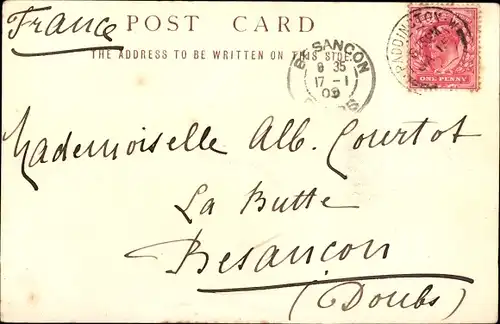 France
POST CARD
THE ADDRESS TO BE WRITTEN ON THIS SIDE.
BESANCON
9 35
17 - 1
09
DOUBS
PADDINGTON. W.
ONE PENNY
Mademoiselle Alb. Courtot
La Butte
Besançon
(Doubs)